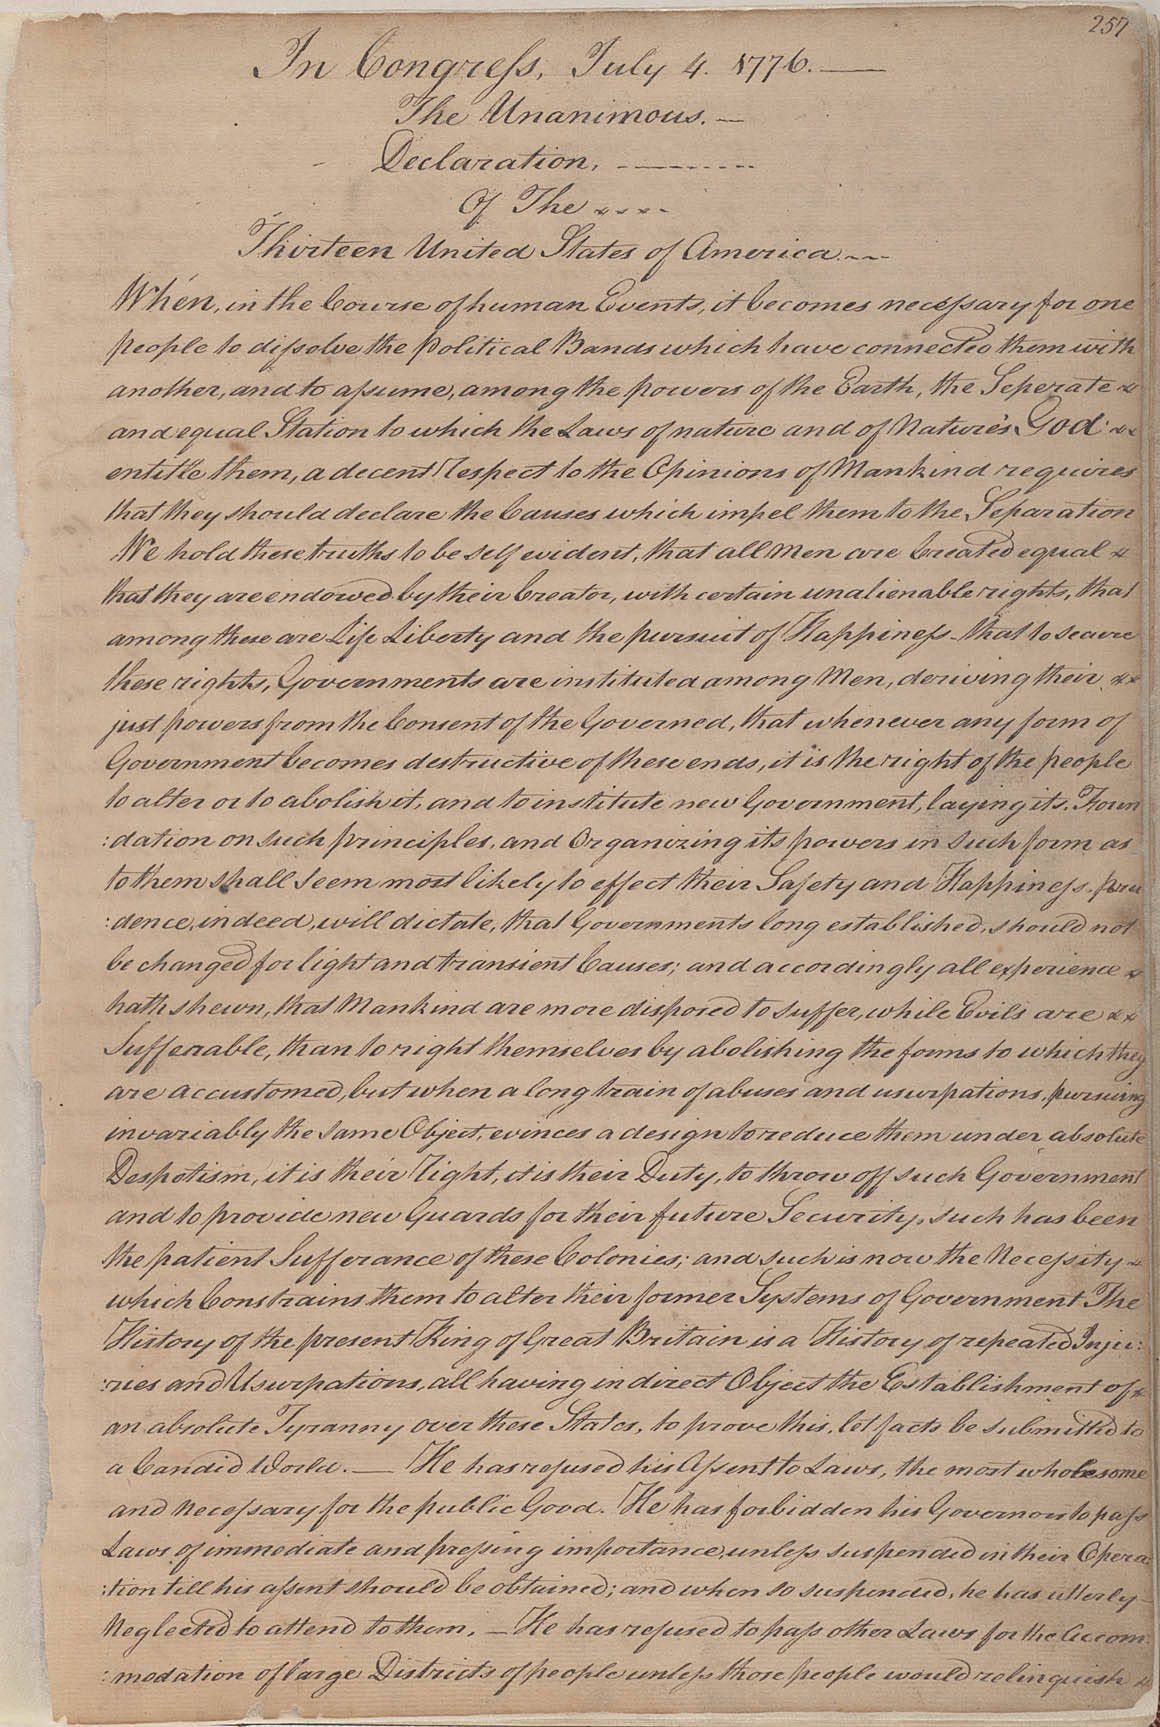 257
In Congress, July 4. 1776. —
The Unanimous. —
Declaration, - - - - - - -
Of The
Thirteen United States of America
When, in the Course of human Events, it becomes necessary for one
people to dissolve the Political Bands which have connected them with
another, and to assume, among the powers of the Earth, the Seperate
and equal Station to which the Laws of nature and of Nature's God
entitle them, a decent respect to the Opinions of Mankind requires
that they should declare the Causes which impel them to the Separation
We hold these truths to be self evident, that all Men are Created equal
that they are endowed by their Creator, with certain unalienable rights, that
among these are Life Liberty and the pursuit of Happiness - that to secure
these rights, Governments are instituted among Men, deriving their
just powers from the Consent of the Governed, that whenever any form of
Government becomes destructive of these ends, it is the right of the people
to alter or to abolish it, and to institute new Government, laying its Foun
:dation on such principles, and Organizing its powers in such form as
to them shall seem most likely to effect their Safety and Happiness. pru
:dence, indeed, will dictate, that Governments long established, should not
be changed for light and transient Causes; and accordingly all experience
hath shewn, that Mankind are more disposed to suffer, while Evils are
Sufferable, than to right themselves by abolishing the forms to which they
are accustomed, but when a long train of abuses and usurpations, pursuing
invariably the same Object, evinces a design to reduce them under absolute
Despotism, it is their right, it is their Duty, to throw off such Government
and to provide new Guards for their future Security, such has been
the patient Sufferance of these Colonies; and such is now the Necessity
which Constrains them to alter their former Systems of Government. The
History of the present King of Great Britain is a History of repeated Inju:
:ries and Usurpations, all having in direct Object the Establishment of
an absolute Tyranny over these States, to prove this, let facts be submitted to
a Candid World. — He has refused his Assent to Laws, the most wholesome
and necessary for the public Good. He has forbidden his Governors to pass
Laws of immediate and pressing importance, unless suspended in their Opera
:tion till his assent should be obtained; and when so suspended, he has utterly
Neglected to attend to them, — He has refused to pass other Laws for the accom:
:modation of large Districts of people unless those people would relinquish